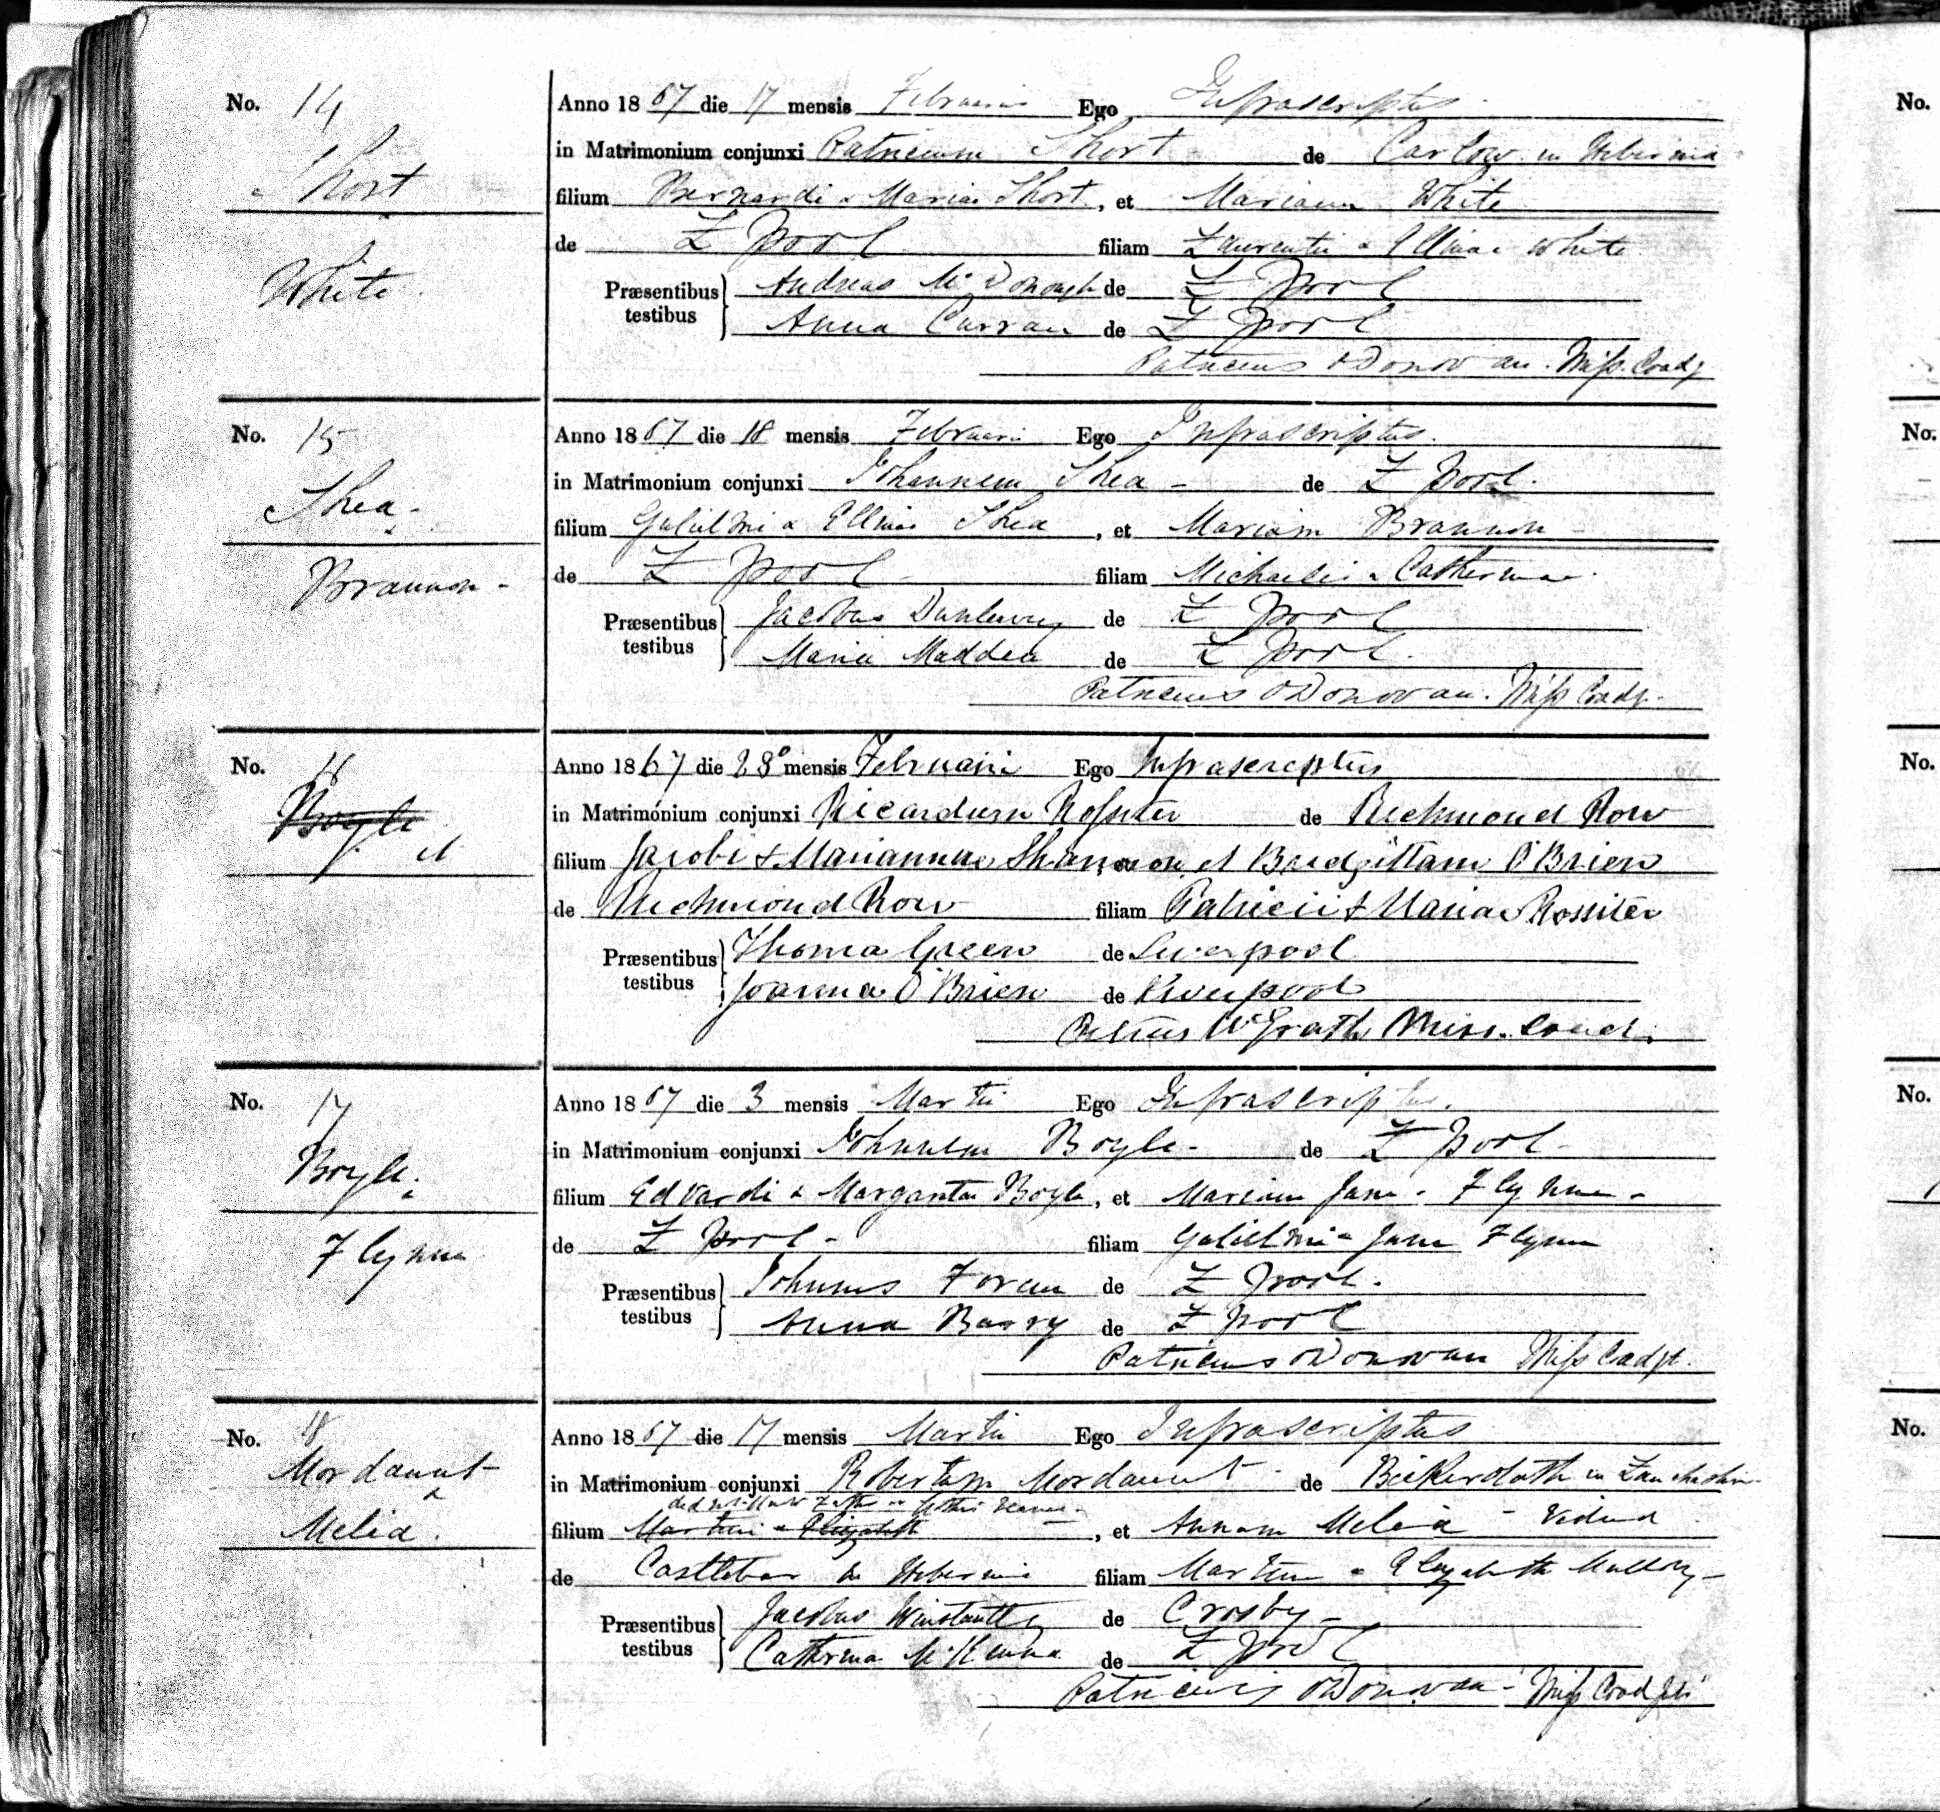 No. 14
Short
&
White
Anno 1867 die 17 mensis Februarii Ego Infrascriptus
in Matrimonium conjunxi Patricium Short de Carlow in Hibernia
filium Bernardi & Mariae Short, et Mariam White
de L pool filiam Laurentii & Ellinae White
Præsentibus testibus
Andreas McDonough de L pool
Anna Curran de L pool
Patricius O'Donovan. Miss. Coadj
No. 15
Shea
&
Brannon
Anno 1867 die 18 mensis Februarii Ego Infrascriptus.
in Matrimonium conjunxi Johannem Shea de L pool.
filium Gulielmi & Ellinae Shea, et Mariam Brannon
de L pool filiam Michaelis & Catherinae.
Præsentibus testibus
Jacobus Dunlevey de L pool
Maria Madden de L pool.
Patricius O'Donovan. Miss Coadj.
No. 16
Boyle
et
Anno 1867 die 28° mensis Februarii Ego Infrascriptus
in Matrimónium conjunxi Ricardum Rossiter de Richmond Row
filium Jacobi & Mariannae Shannon, et Bridgittam O'Brien
de Richmond Row filiam Patricii & Mariae Rossiter
Præsentibus testibus
Thoma Green de Liverpool
Joanna O'Brien de Liverpool
Petrus McGrath Miss. Coadj.
No. 17
Boyle
&
Flynn
Anno 1867 die 3 mensis Martii Ego Infrascriptus.
in Matrimonium conjunxi Johannem Boyle de L pool
filium Edvardi & Margaritae Boyle, et Mariam Jane Flynn
de L pool filiam Gulielmi & Jane Flynn
Præsentibus testibus
Johannes Foran de L pool.
Anna Barry de L pool
Patricius O'Donovan Miss Coadj.
No. 18
Mordaunt
&
Melia.
Anno 1867 die 17 mensis Martii Ego Infrascriptus
in Matrimonium conjunxi Robertum Mordaunt de Bickerstaffe in Lancashire
did not
filium Martini & Elizabeth, et Annam Melia - Vidua
de Castlebar in Hibernia filiam Martini & Elizabeth Mulloy
Præsentibus testibus
Jacobus Winstanley de Crosby
Catherina McKenna de L pool
Patricius O'Donovan Miss Coadj
No.
No.
No.
No.
No.